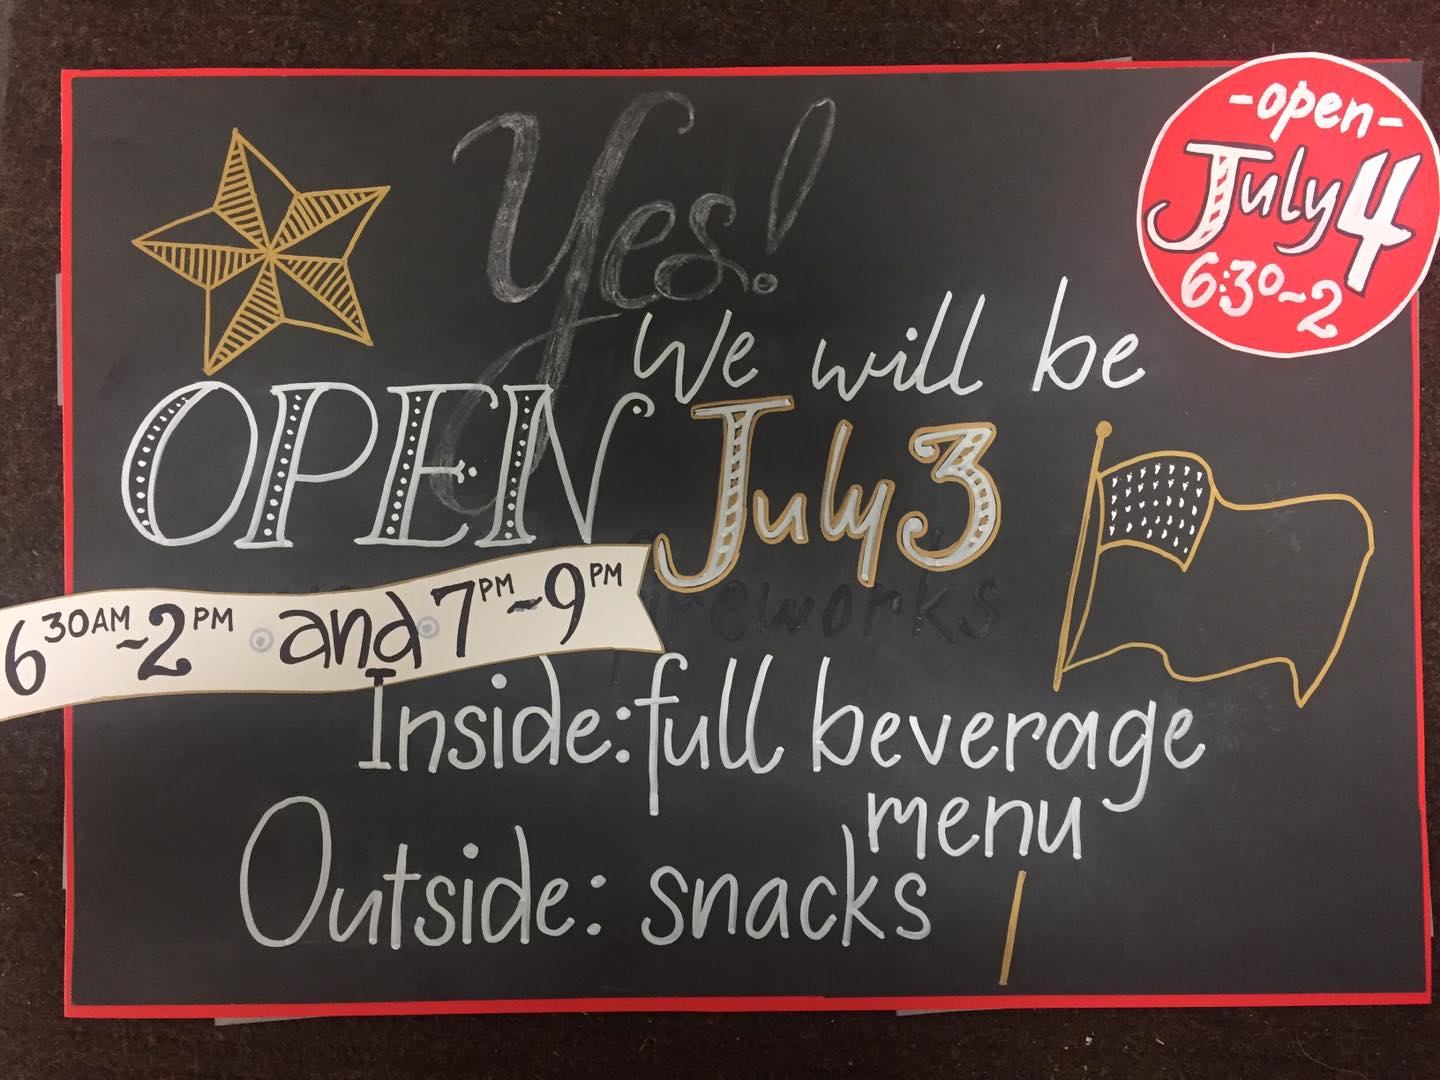 Yes!
-open-
July 4
6:30-2
We will be
OPEN July 3
6 30AM - 2 PM and 7 PM - 9 PM
fireworks
Inside: full beverage
menu
Outside: snacks